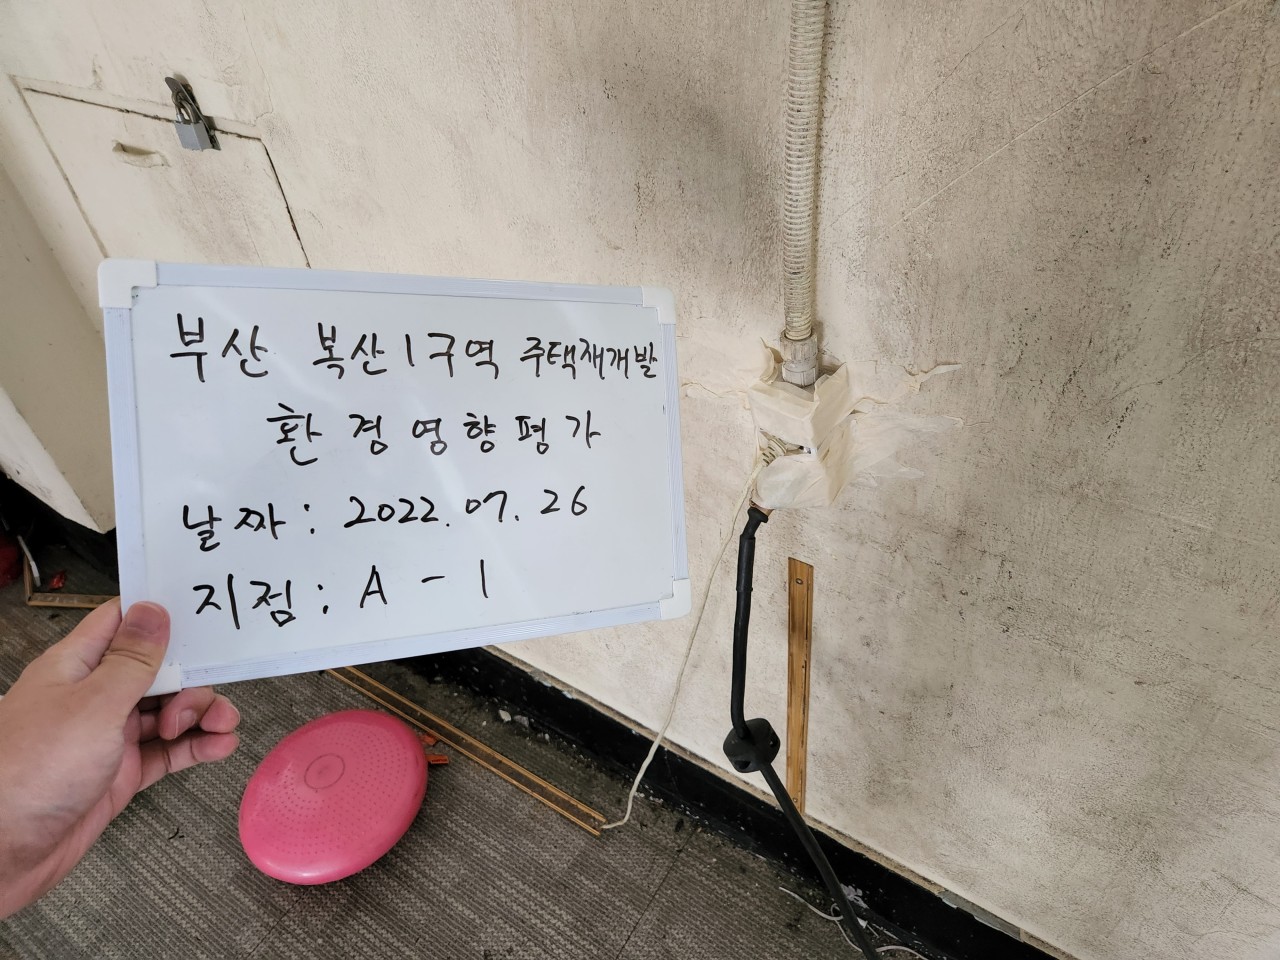 부산 복산1구역 주택재개발
환경영향평가
날짜: 2022.07.26
지점: A - 1